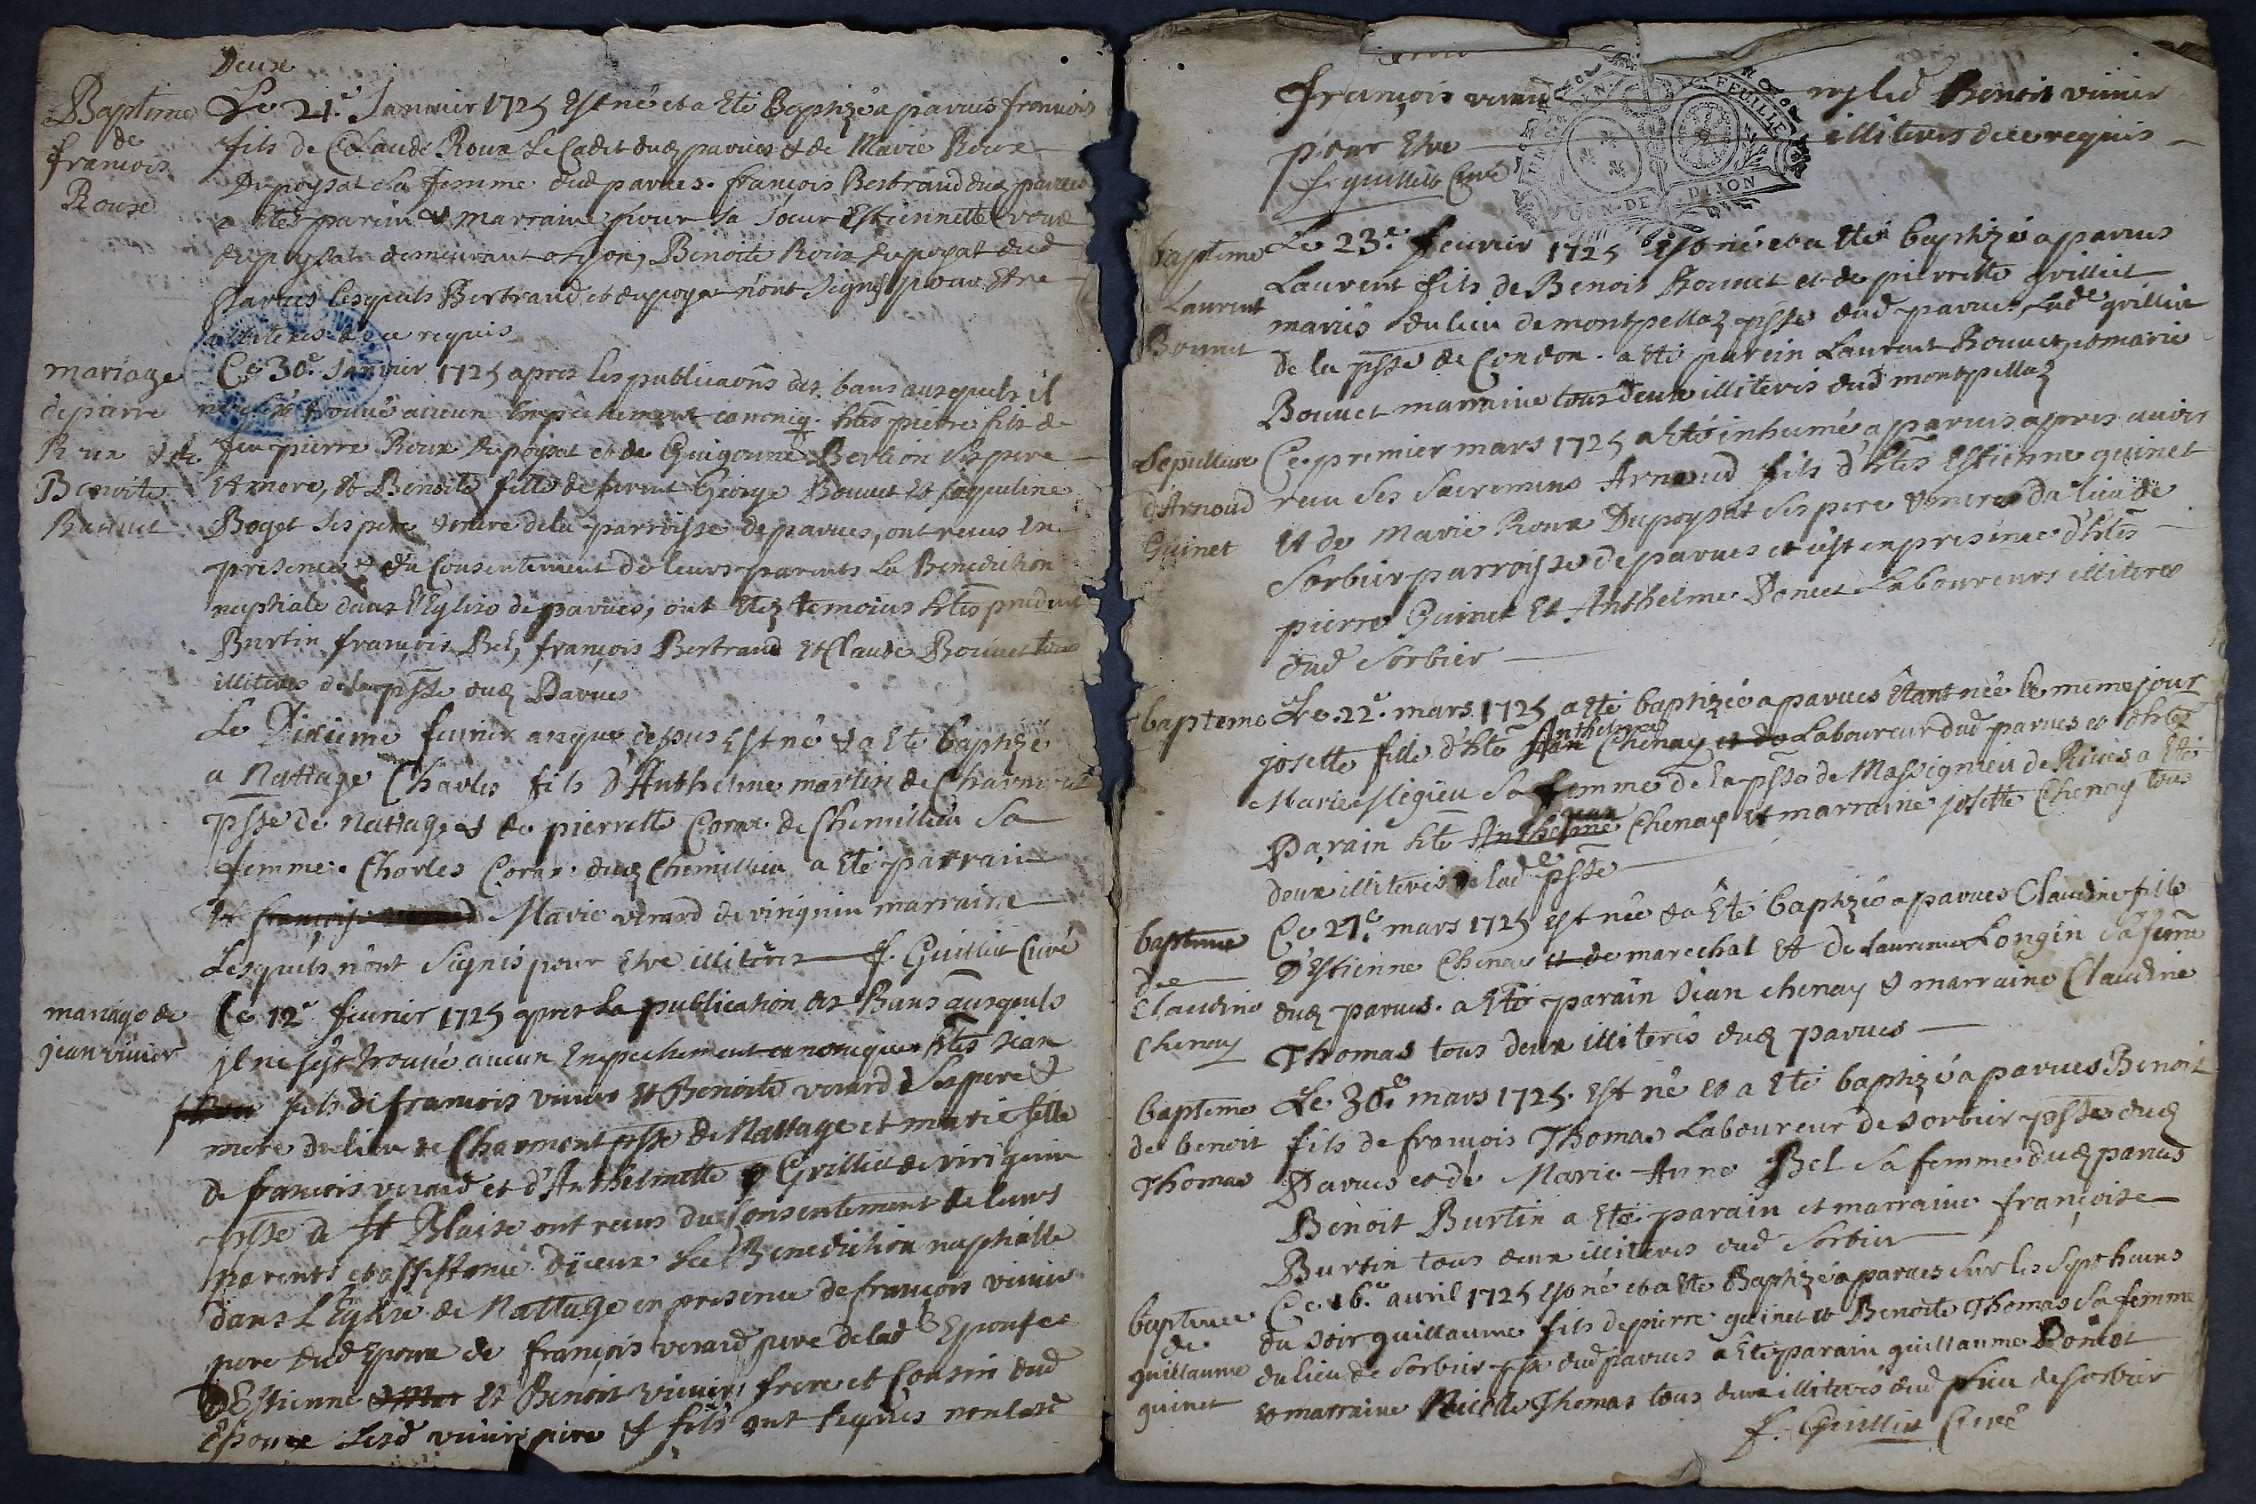 Deux
Baptême
de
françois
Roux
Le 21e. Januier 1725 Est né et a Eté Baptizé a parues francois
fils de Claude Roux Le Cadet dud parues & de Marie Roux
Depoysat sa femme dud parues. françois Bertrand dud parues
a Eté parrin & marraine pour sa soeur Estiennette
depoysat demeurant a Lyon, Benoite Roux depoysat dud
Parues lesquels Bertrand et depoysat n'ont signé pour Etre
illiteres de ce requis
mariage
de pierre
Roux & de
Benoite
Bouuet
Ce 30e. Januier 1725 apres les publicaons des bans ausquels il
ne s'est trouué aucun Empechement canoniq. htes pierre fils de
feu pierre Roux depoysat et de Guigonne Berlion ses pere
Et mere, & Benoite fille de George Bouuet et Jaqueline
Boget ses pere & mere de la parroisse de parues, ont receus En
presence & du Consentement de leurs parents La Benediction
nuptiale dans l'Eglise de parues, ont Etez temoins htes prudent
Burtin françois Bel, françois Bertrand Et Claude Bouuet tous
illiteres de la psse dud Parues
Le Dixieme feurier an que dessus Est né & a Eté baptizé
a Nattage Charles fils d'Anthelme martin de Charmont
psse de Nattage & de pierrette Corax de Chemillieu sa
femme. Charles Corax dud Chemillieu a Eté parrain
& françoise verard Marie verard de viriguin marraine
Lesquels n'ont signés pour Etre illiteres f. Guillict Curé
mariage de
jean viuier
Ce 12e feurier 1725 apres La publication des Bans ausquels
il ne s'est trouué aucun Empechement canonique htes Jean
fils de francois viuier et Benoite verard ses pere &
mere du lieu de Charmont psse de Nattage et marie fille
de francois verard et d'Anthelmette Grilliet de viriguin
psse de St Blaise ont receus du Consentement de leurs
parents et assistance d'iceux La Benediction nuptialle
dans L'Eglise de Nattage en presence de françois viuier
pere dud Epoux de françois verard pere de lad Epouse
d'Estienne Et Benoit viuier frere et Cousin dud
Epoux Lesd viuier pere & fils ont signés non led
françois verard ny led Benoit viuier
pour Etre illiteres de ce requis
f. guillict Curé
GEN. DE DIJON
baptême
Laurent
Bouuet
Le 23e. feurier 1725 Est né et a Eté baptizé a parues
Laurent fils de Benoit Bouuet et de pierrette grilliet
mariés du lieu de montpellaz psse dud parues Lade grilliet
de la psse de Condon. a Eté parein Laurent Bouuet, et marie
Bouuet marraine tous deux illiteres dud montpellaz
Sepulture
d'Arnoud
Guinet
Ce premier mars 1725 a Eté inhumé a parues apres auoir
receu ses sacremens Arnoud fils d'htes Estienne guinet
Et de Marie Roux Depoysat ses pere & mere du lieu de
Sorbier parroisse de parues et c'est en presence d'htes
pierre Guinet Et Anthelme Poncet Laboureurs illiteres
dud Sorbier
bapteme
Le 22e. mars 1725 a Eté baptizée a parues Etant née le meme jour
josette fille d'hte Jean Anthelme Chenay et de Laboureur dud parues et d'hte
Marie Megieu sa femme de la psse de Massignieu de Riues a Eté
Parain hte Anthelme jean Chenay Et marraine josette Chenay tous
deux illiteres de lade psse
baptême
de
Claudine
Chenay
Ce 27e. mars 1725 Est née & a Eté baptizée a parues Claudine fille
d'Estienne Chenay et de marechal Et de Laurence Longin sa feme
dud parues. a Eté parain Jean chenay & marraine Claudine
Thomas tous deux illiteres dud parues
baptême
de benoit
Thomas
Le 30e. mars 1725. Est né et a Eté baptizé a parues Benoit
fils de francois Thomas Laboureur de Sorbier psse dud
Parues et de Marie Anne Bel sa femme dud parues
Benoit Burtin a Eté parain et marraine françoise
Burtin tous deux illiteres dud Sorbier
bapteme
de
guillaume
guinet
Ce 16e. auril 1725 Est né et a Eté Baptizé a parues sur les sept heures
du soir guillaume fils de pierre guinet & Benoite Thomas sa femme
du lieu de Sorbier psse dud parues a Eté parain guillaume Poncet
& marraine Nicolle Thomas tous deux illiteres dud lieu de Sorbier
f. Guillict Curé